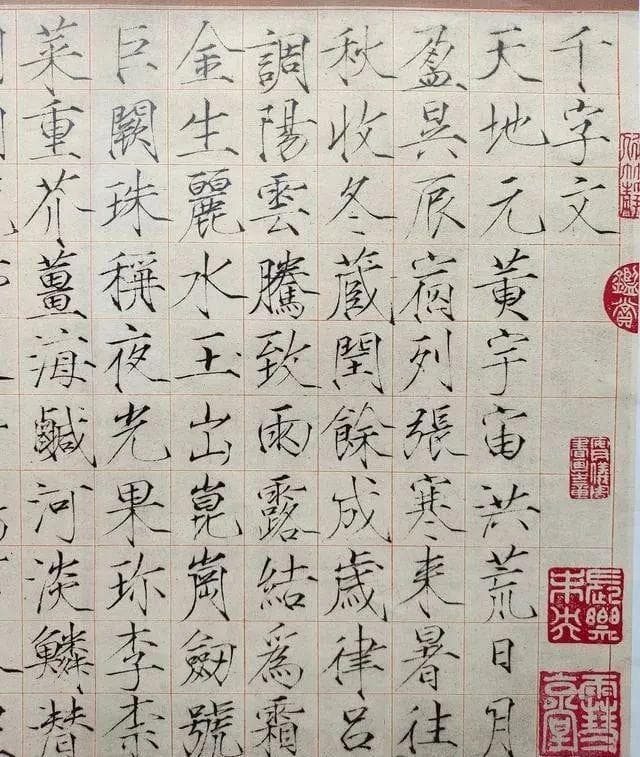 千字文
天地元黄宇宙洪荒日月
盈昃辰宿列張寒来暑往
秋收冬蔵閏餘成歲律吕
調陽雲騰致雨露結爲霜
金生麗水玉出崑崗劔號
巨闕珠稱夜光果珎李柰
菜重芥薑海鹹河淡鱗潛
鑑賞
長樂未央